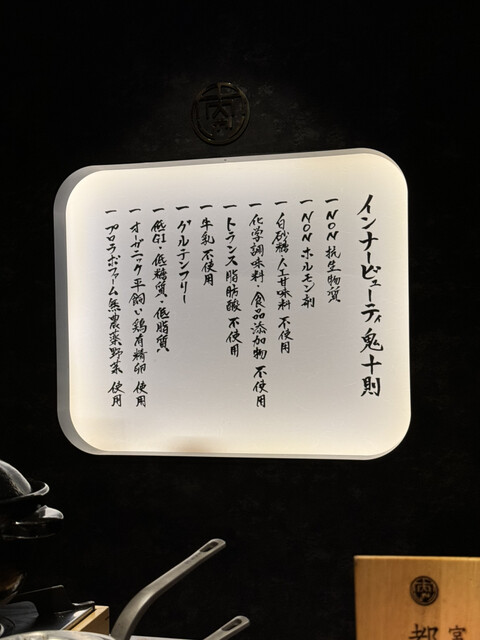 インナービューティ鬼十則
一 NON 抗生物質
一 NON ホルモン剤
一 白砂糖・人工甘味料 不使用
一 化学調味料・食品添加物 不使用
一 トランス脂肪酸 不使用
一 牛乳 不使用
一 グルテンフリー
一 低GI・低糖質・低脂質
一 オーガニック平飼い鶏有精卵 使用
一 プロラボファーム無農薬野菜 使用
都